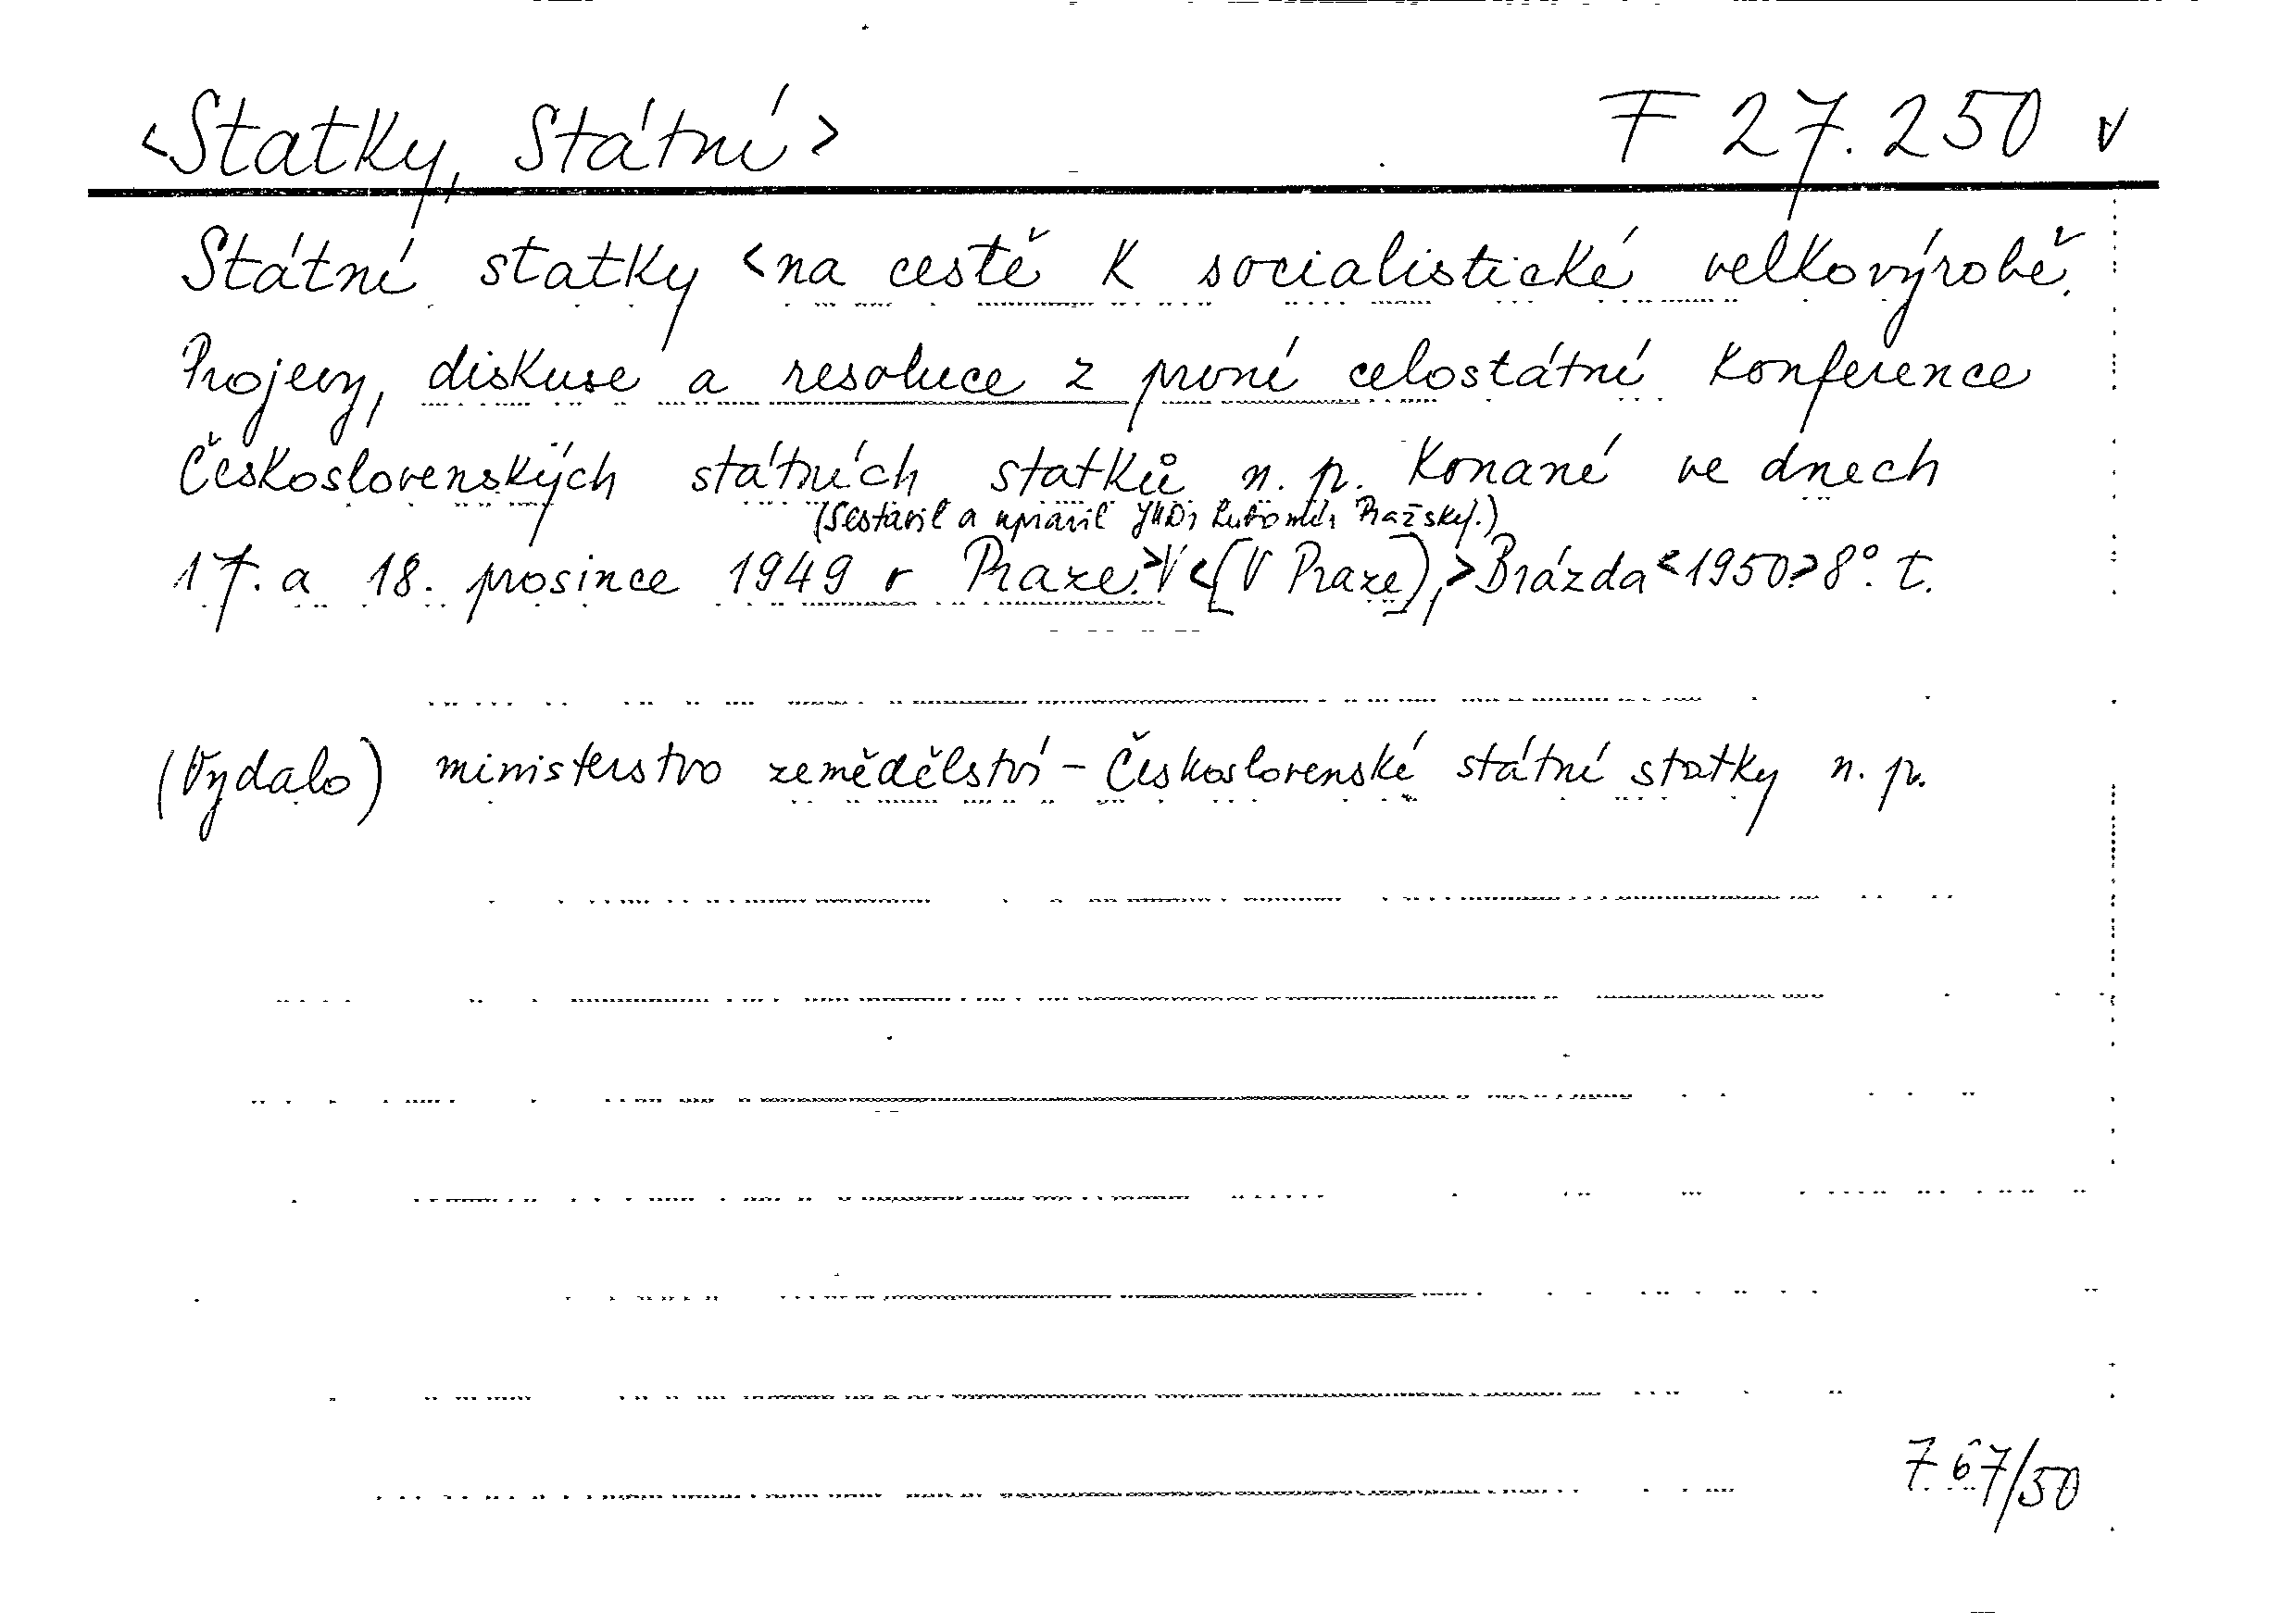 <Statky, Státní> F 27.250 v
Státní statky <na cestě k socialistické velkovýrobě.
Projevy, diskuse a resoluce z první celostátní konference
Československých státních statků n. p. konané ve dnech
(Sestavil a upravil JUDr Lubomír Pražský.)
17. a 18. prosince 1949 v Praze.>V<[V Praze],>Brázda<1950>8°. t.
(Vydalo) ministerstvo zemědělství - Československé státní statky n. p.
767/50